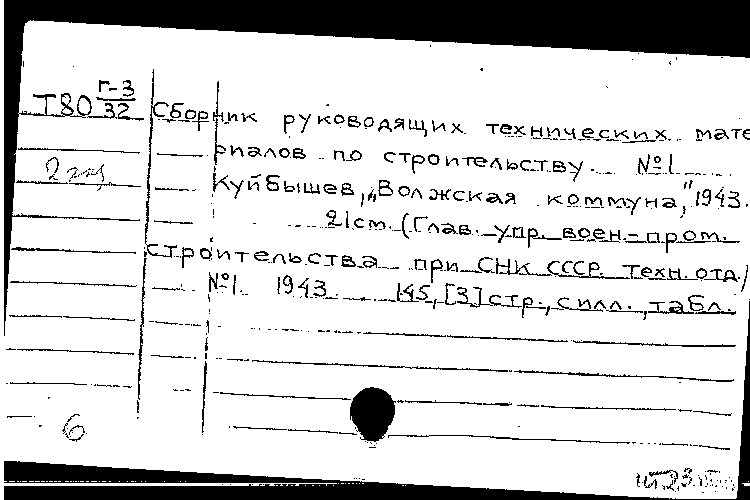 Т80 Г-3/32 Сборник руководящих технических мате
2 экз риалов по строительству. №1
Куйбышев, „Волжская коммуна," 1943.
21см. (Глав. упр. воен.-пром.
строительства при СНК СССР. Техн. отд.)
№1. 1943. 145, [3] стр., с илл., табл.
6